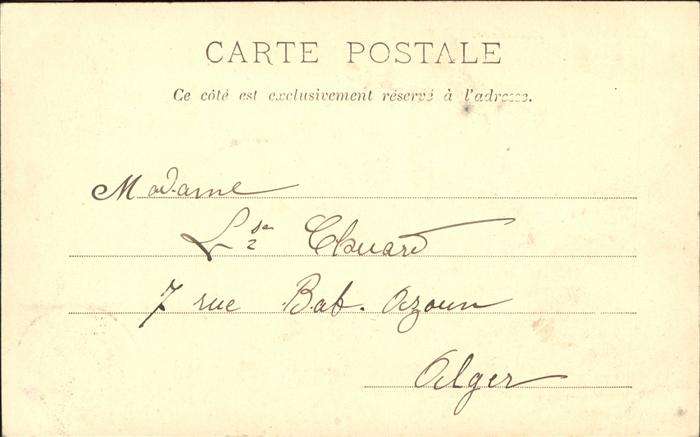 CARTE POSTALE
Ce côté est exclusivement réservé à l'adresse.
Madame
7 rue Bab. Azoun
Alger